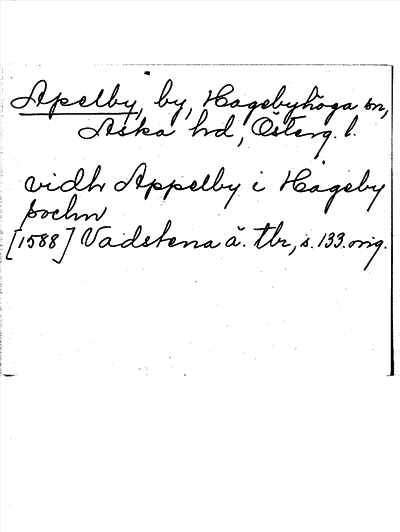 Apelby, by, Hagebyhöga sn,
Aska hd, Österg. l.
vidh Appelby i Hageby
sochn
[1588] Vadstena ä. tbr, s. 133. orig.